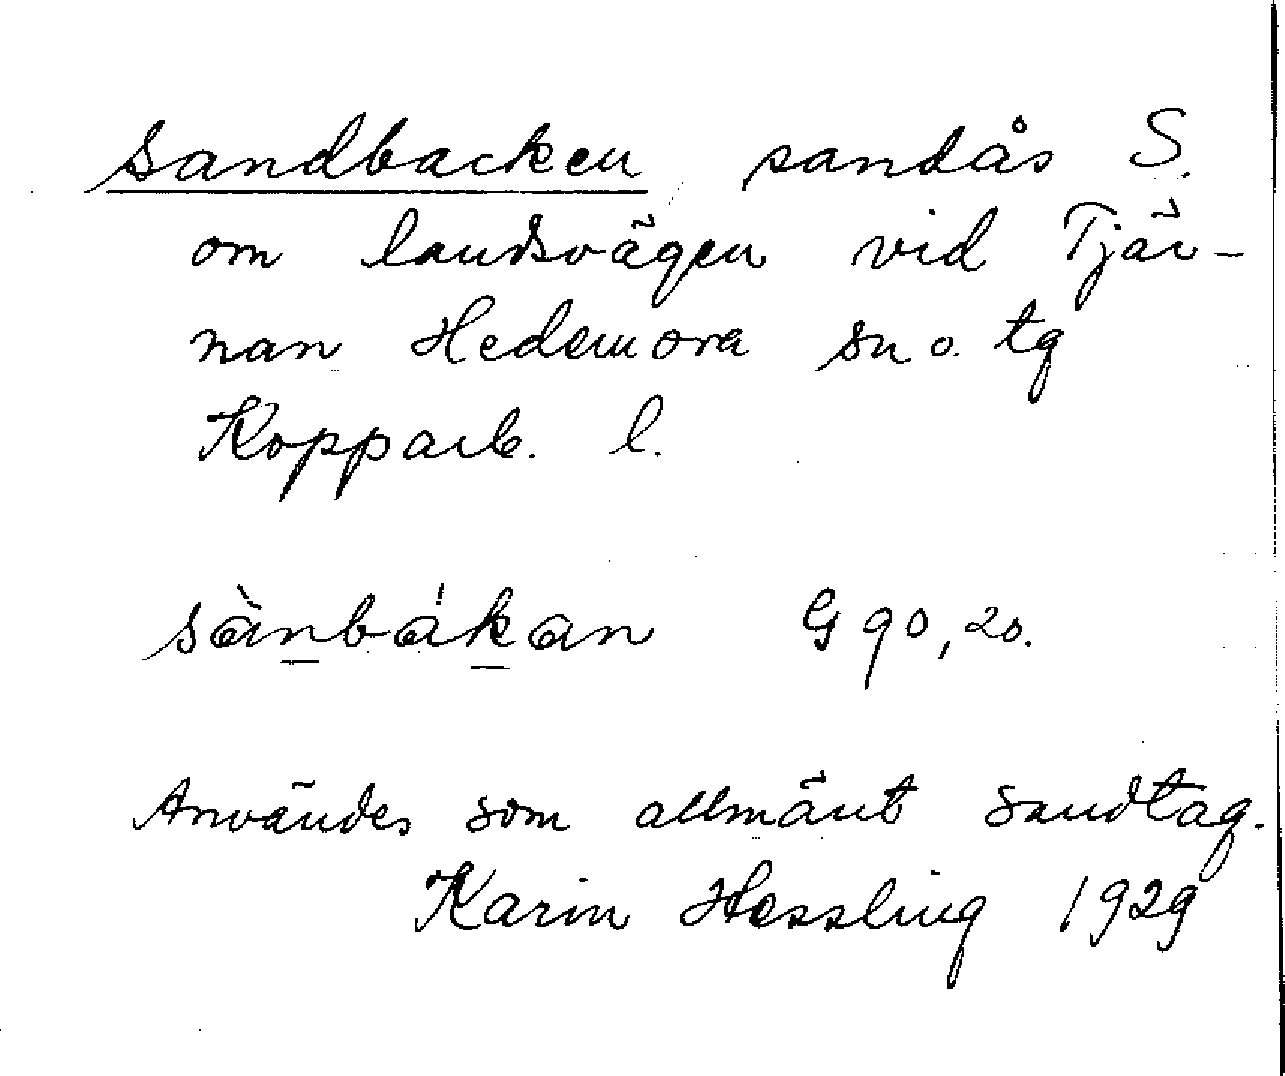 Sandbacken sandås S.
om landsvägen vid Tjär-
nan Hedemora sn o. tg
Kopparb. l.
sànbákan G 90, 20.
Användes som allmänt sandtag.
Karin Hessling 1929